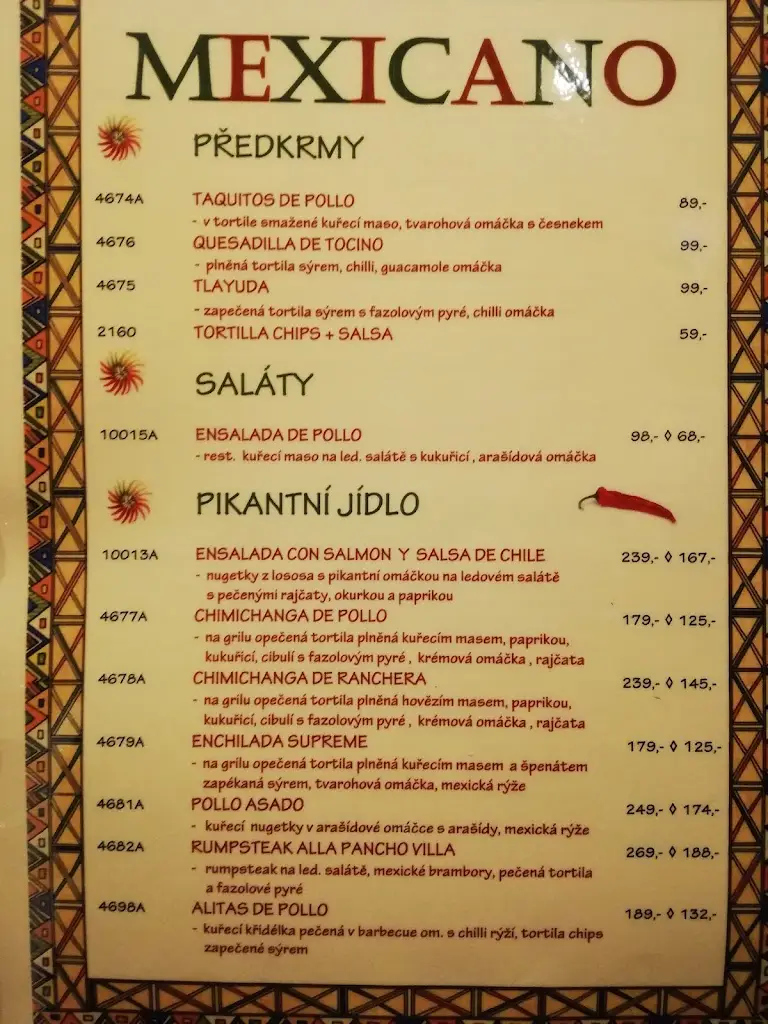 MEXICANO
PŘEDKRMY
4674A TAQUITOS DE POLLO 89,-
- v tortile smažené kuřecí maso, tvarohová omáčka s česnekem
4676 QUESADILLA DE TOCINO 99,-
- plněná tortila sýrem, chilli, guacamole omáčka
4675 TLAYUDA 99,-
- zapečená tortila sýrem s fazolovým pyré, chilli omáčka
2160 TORTILLA CHIPS + SALSA 59,-
SALÁTY
10015A ENSALADA DE POLLO 98,- ◊ 68,-
- rest. kuřecí maso na led. salátě s kukuřicí , arašídová omáčka
PIKANTNÍ JÍDLO
10013A ENSALADA CON SALMON Y SALSA DE CHILE 239,- ◊ 167,-
- nugetky z lososa s pikantní omáčkou na ledovém salátě
s pečenými rajčaty, okurkou a paprikou
4677A CHIMICHANGA DE POLLO 179,- ◊ 125,-
- na grilu opečená tortila plněná kuřecím masem, paprikou,
kukuřicí, cibulí s fazolovým pyré , krémová omáčka , rajčata
4678A CHIMICHANGA DE RANCHERA 239,- ◊ 145,-
- na grilu opečená tortila plněná hovězím masem, paprikou,
kukuřicí, cibulí s fazolovým pyré , krémová omáčka , rajčata
4679A ENCHILADA SUPREME 179,- ◊ 125,-
- na grilu opečená tortila plněná kuřecím masem a špenátem
zapékaná sýrem, tvarohová omáčka, mexická rýže
4681A POLLO ASADO 249,- ◊ 174,-
- kuřecí nugetky v arašídové omáčce s arašídy, mexická rýže
4682A RUMPSTEAK ALLA PANCHO VILLA 269,- ◊ 188,-
- rumpsteak na led. salátě, mexické brambory, pečená tortila
a fazolové pyré
4698A ALITAS DE POLLO 189,- ◊ 132,-
- kuřecí křidélka pečená v barbecue om. s chilli rýží, tortila chips
zapečené sýrem